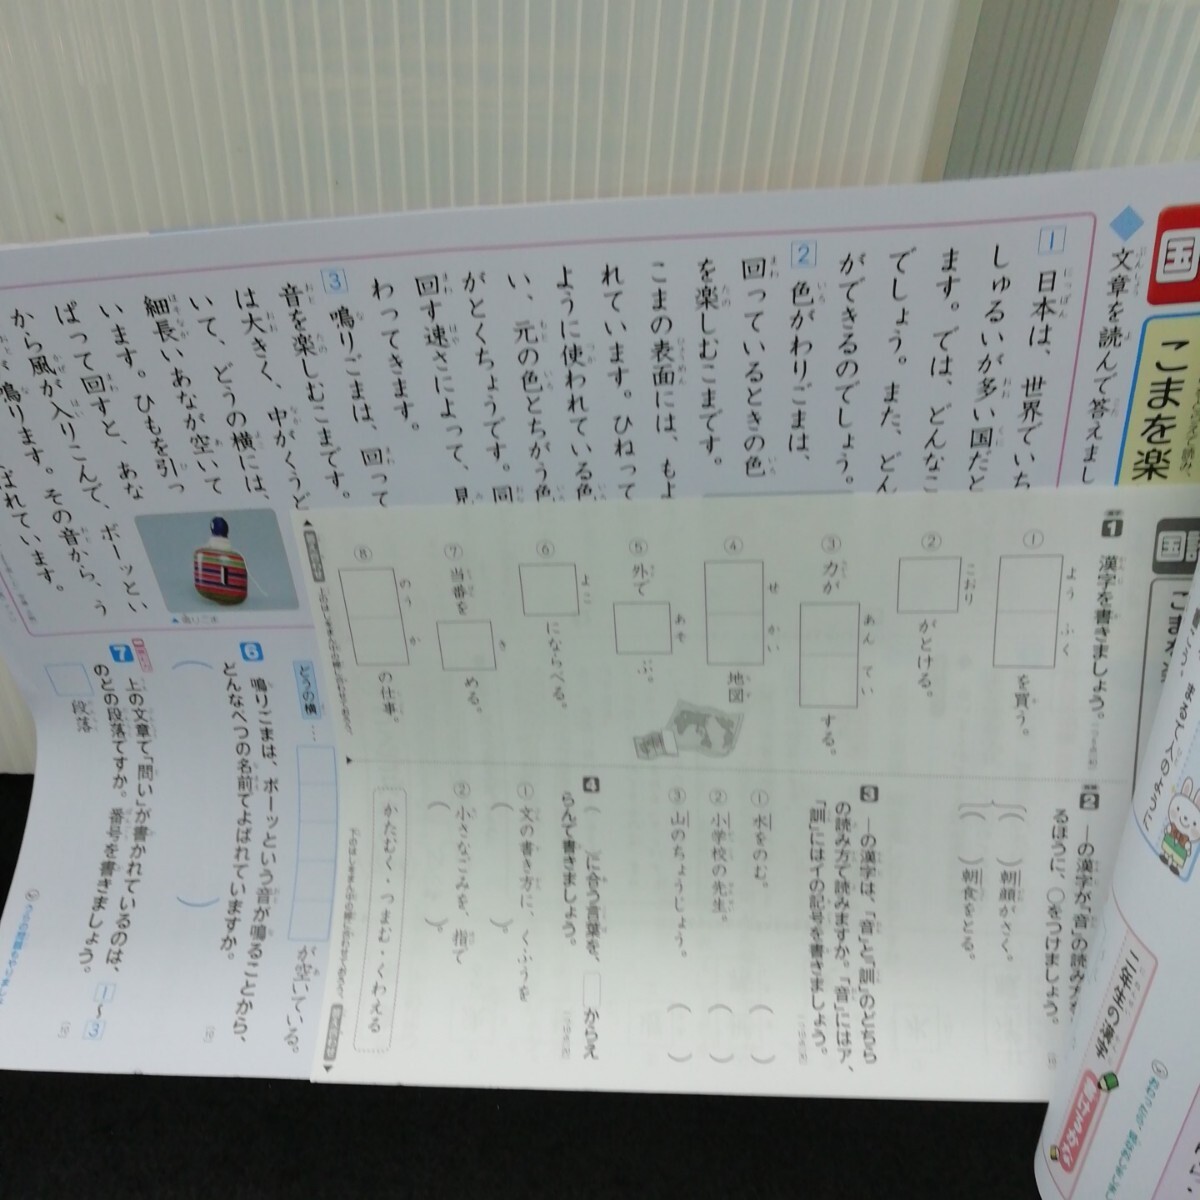 国
こまを楽
文章を読んで答えまし
1 日本は、世界でいち
しゅるいが多い国だと
ます。では、どんなこ
でしょう。また、どん
ができるのでしょう。
2 色がわりごまは、
回っているときの色
を楽しむこまです。
こまの表面には、もよ
れています。ひねって
ように使われている色
い、元の色とちがう色
がとくちょうです。同
回す速さによって、見
わってきます。
3 鳴りごまは、回って
音を楽しむこまです。
は大きく、中がくうど
いて、どうの横には、
細長いあなが空いて
います。ひもを引っ
ぱって回すと、あな
から風が入りこんで、ボーッとい
が鳴ります。その音から、う
ばれています。
▲鳴りごま
どうの横…
が空いている。
6 鳴りごまは、ボーッという音が鳴ることから、
どんなべつの名前でよばれていますか。
7 上の文章で「問い」が書かれているのは、1〜3
のどの段落ですか。番号を書きましょう。
段落
国語
1 漢字を書きましょう。
① ようふく を買う。
② こおり がとける。
③ 力が あんてい する。
④ せかい 地図
⑤ 外で あそ ぶ。
⑥ よこ にならべる。
⑦ 当番を き める。
⑧ のうか の仕事。
2 ―の漢字が「音」の読み方を
るほうに、○をつけましょう。
( )朝顔がさく。
( )朝食をとる。
3 ―の漢字は、「音」と「訓」のどちら
の読み方で読みますか。「音」にはア、
「訓」にはイの記号を書きましょう。
① 水をのむ。 ( )
② 小学校の先生。 ( )
③ 山のちょうじょう。 ( )
4 ( )に合う言葉を、□からえ
らんで書きましょう。
① 文の書き方に、くふうを
( )。
② 小さなごみを、指で
( )。
かたむく・つまむ・くわえる
二年生の漢字